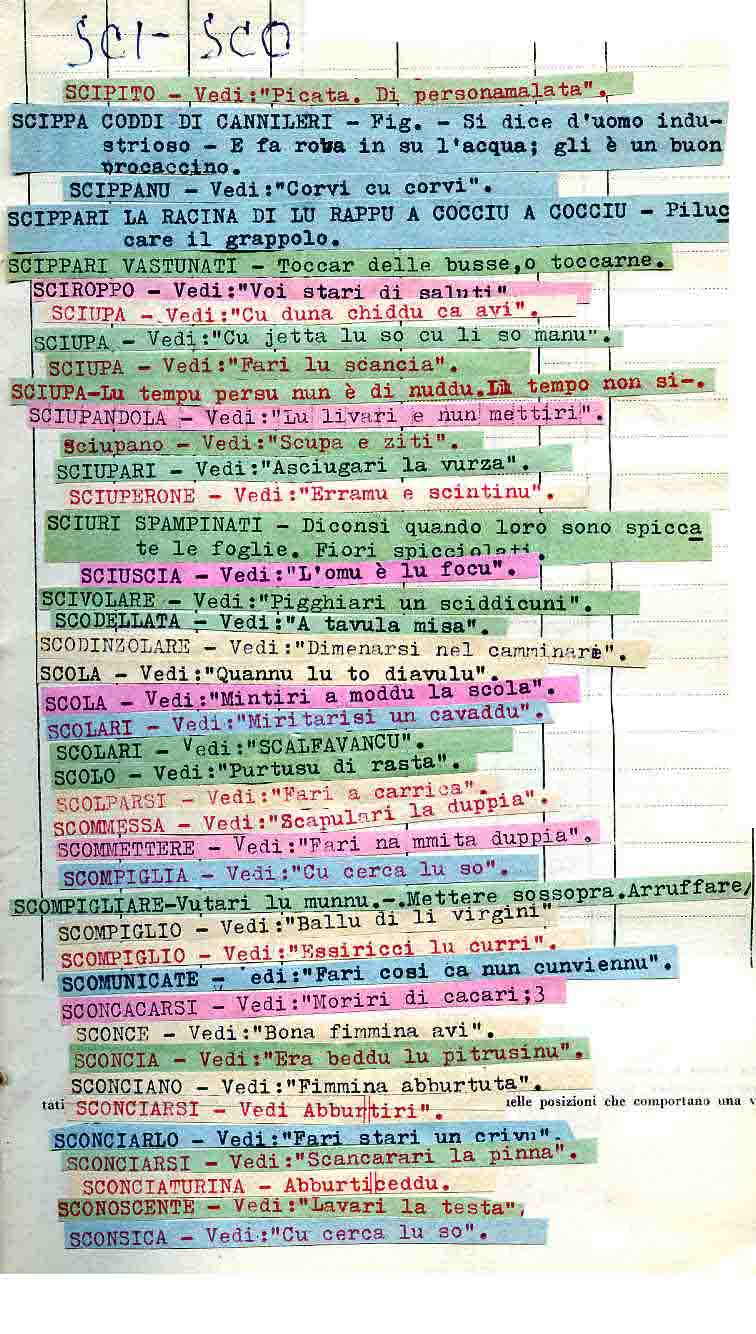 SCI- SCO
SCIPITO - Vedi:"Picata. Di personamalata".
SCIPPA CODDI DI CANNILERI - Fig. - Si dice d'uomo indu-
strioso - E fa roba in su l'acqua; gli è un buon
procaccino.
SCIPPANU - Vedi:"Corvi cu corvi".
SCIPPARI LA RACINA DI LU RAPPU A COCCIU A COCCIU - Piluc
care il grappolo.
SCIPPARI VASTUNATI - Toccar delle busse,o toccarne.
SCIROPPO - Vedi:"Voi stari di saluti"
SCIUPA - Vedi:"Cu duna chiddu ca avi".
SCIUPA - Vedi:"Cu jetta lu so cu li so manu".
SCIUPA - Vedi:"Fari lu scancia".
SCIUPA-Lu tempu persu nun è di nuddu.Il tempo non si-.
SCIUPANDOLA - Vedi:"Lu livari e nun mettiri".
Sciupano - Vedi:"Scupa e ziti".
SCIUPARI - Vedi:"Asciugari la vurza".
SCIUPERONE - Vedi:"Erramu e scintinu".
SCIURI SPAMPINATI - Diconsi quando loro sono spicca
te le foglie. Fiori spicciolati.
SCIUSCIA - Vedi:"L'omu è lu focu".
SCIVOLARE - Vedi:"Pigghiari un sciddicuni".
SCODELLATA - Vedi:"A tavula misa".
SCODINZOLARE - Vedi:"Dimenarsi nel camminare".
SCOLA - Vedi:"Quannu lu to diavulu".
SCOLA - Vedi:"Mintiri a moddu la scola".
SCOLARI - Vedi:"Miritarisi un cavaddu".
SCOLARI - Vedi:"SCALFAVANCU".
SCOLO - Vedi:"Purtusu di rasta".
SCOLPARSI - Vedi:"Fari a carrica".
SCOMMESSA - Vedi:"Scapulari la duppia".
SCOMMETTERE - Vedi:"Fari na mmita duppia".
SCOMPIGLIA - Vedi:"Cu cerca lu so".
SCOMPIGLIARE-Vutari lu munnu.-.Mettere sossopra.Arruffare/
SCOMPIGLIO - Vedi:"Ballu di li virgini"
SCOMPIGLIO - Vedi:"Essiricci lu curri".
SCOMUNICATE - edi:"Fari cosi ca nun cunviennu".
SCONCACARSI - Vedi:"Moriri di cacari;3
SCONCE - Vedi:"Bona fimmina avi".
SCONCIA - Vedi:"Era beddu lu pitrusinu".
SCONCIANO - Vedi:"Fimmina abburtuta".
tati SCONCIARSI - Vedi Abburtiri". uelle posizioni che comportano una v
SCONCIARLO - Vedi:"Fari stari un crivu".
SCONCIARSI - Vedi:"Scancarari la pinna".
SCONCIATURINA - Abburticeddu.
SCONOSCENTE - Vedi:"Lavari la testa",
SCONSICA - Vedi:"Cu cerca lu so".